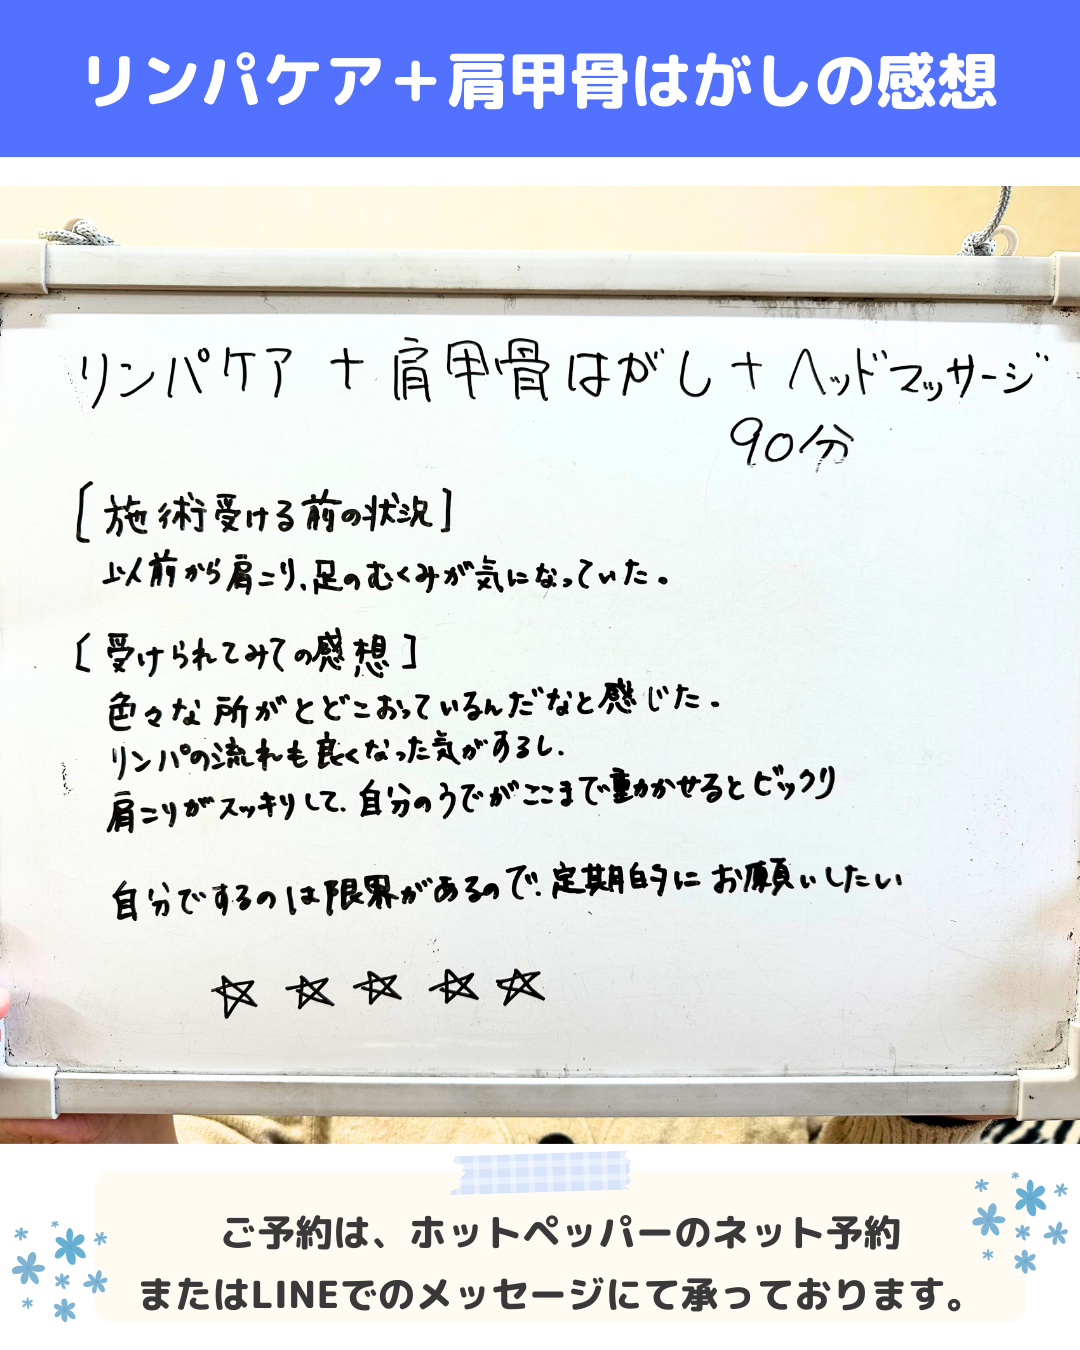 リンパケア＋肩甲骨はがしの感想
リンパケア + 肩甲骨はがし + ヘッドマッサージ
90分
[施術受ける前の状況]
以前から肩こり、足のむくみが気になっていた。
[受けられてみての感想]
色々な所がとどこおっているんだなと感じた。
リンパの流れも良くなった気がするし、
肩こりがスッキリして、自分のうでがここまで動かせるとビックリ
自分でするのは限界があるので、定期的にお願いしたい
☆ ☆ ☆ ☆ ☆
ご予約は、ホットペッパーのネット予約
またはLINEでのメッセージにて承っております。